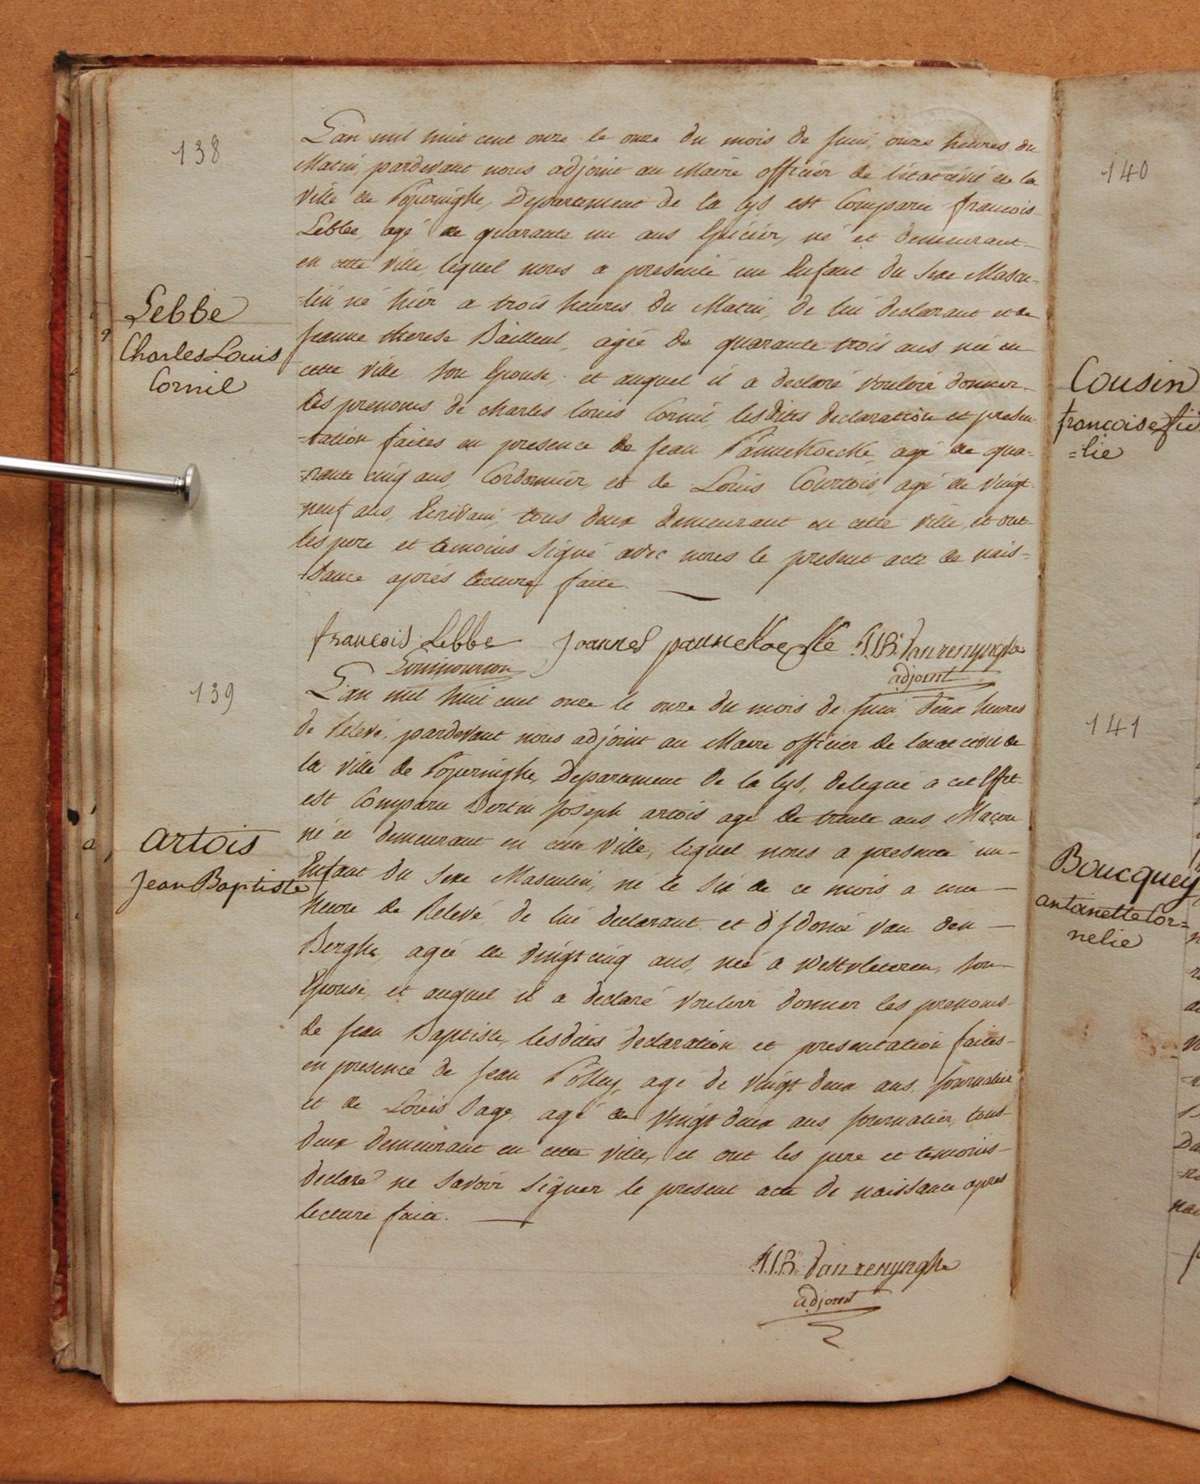 138
Lebbe
Charles Louis
Cornil
L'an mil huit cent onze le onze du mois de Juin, onze heures du
Matin, pardevant nous adjoint au Maire officier de l'état civil de la
Ville de Poperinghe, Departement de la Lys est Comparu francois
Lebbe, agé de quarante un ans Epicier, né et demeurant
en cette Ville, lequel nous a presenté un Enfant du Sexe Mascu-
-lin né hier a trois heures du Matin, de lui declarant et de
Jeanne therese Bailleul agée de quarante trois ans, née en
cette Ville son Epouse, et auquel il a declaré vouloir donner
les prenoms de Charles Louis Cornil lesdites declaration et presen
-tation faites en presence de Jean Pannekoecke, agé de qua-
-rante cinq ans, Cordonnier, et de Louis Courtois, agé de vingt
neuf ans, Ecrivain, tous deux demeurant en cette Ville, et ont
les pere et temoins signé avec nous le present acte de nais-
-sance après lecture faite.
francois Lebbe Joannes pannekoeke F.J.B. Vanrenynghe
adjoint
139
artois
Jean Baptiste
L'an mil huit cent onze le onze du mois de Juin deux heures
de Relevé, pardevant nous adjoint au Maire officier de l'etat civil de
la Ville de Poperinghe, Departement de la Lys, delegué a cet Effet
est Comparu Bertin Joseph artois agé de trente ans, Maçon
né et demeurant en cette Ville, lequel nous a presenté un
Enfant du Sexe Masculin, né le six de ce mois a une
heure de Relevé de lui declarant et d'Isdonie van den
Berghe, agée de vingt cinq ans, née a Westvleteren, son
Epouse, et auquel il a declaré vouloir donner les prenoms
de Jean Baptiste, lesdites declaration et presentation faites
en presence de Jean Polley, agé de vingt deux ans, Journalier
et de Louis Page agé de vingt deux ans Journalier, tous
deux demeurant en cette Ville, et ont les pere et temoins
declaré ne savoir signer le present acte de naissance après
lecture faite.
F.J.B. Vanrenynghe
adjoint
140
Cousin
françoise
=lie
141
Boucquey
antoinette Cor=
nelie